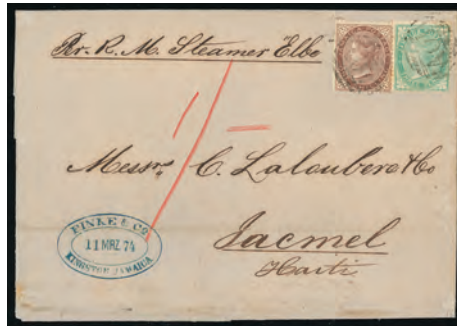 Per. R. M. Steamer Elbe
1/-
Messrs C. Laloubere & Co
Jacmel
Haiti
FINKE & Co
11 MRZ 74
KINGSTON JAMAICA